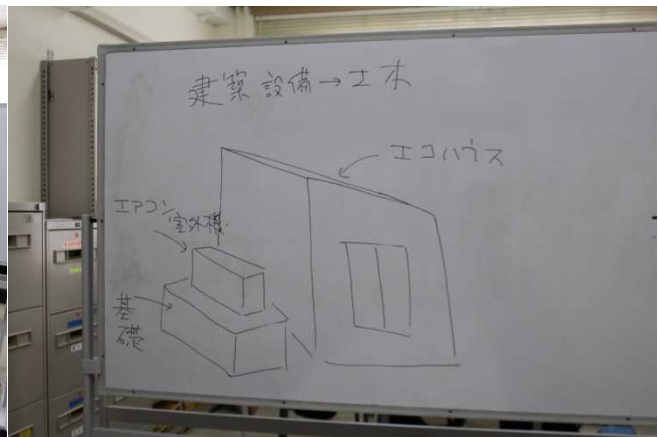 建築設備→土木
エコハウス
エアコン
室外機
基
礎